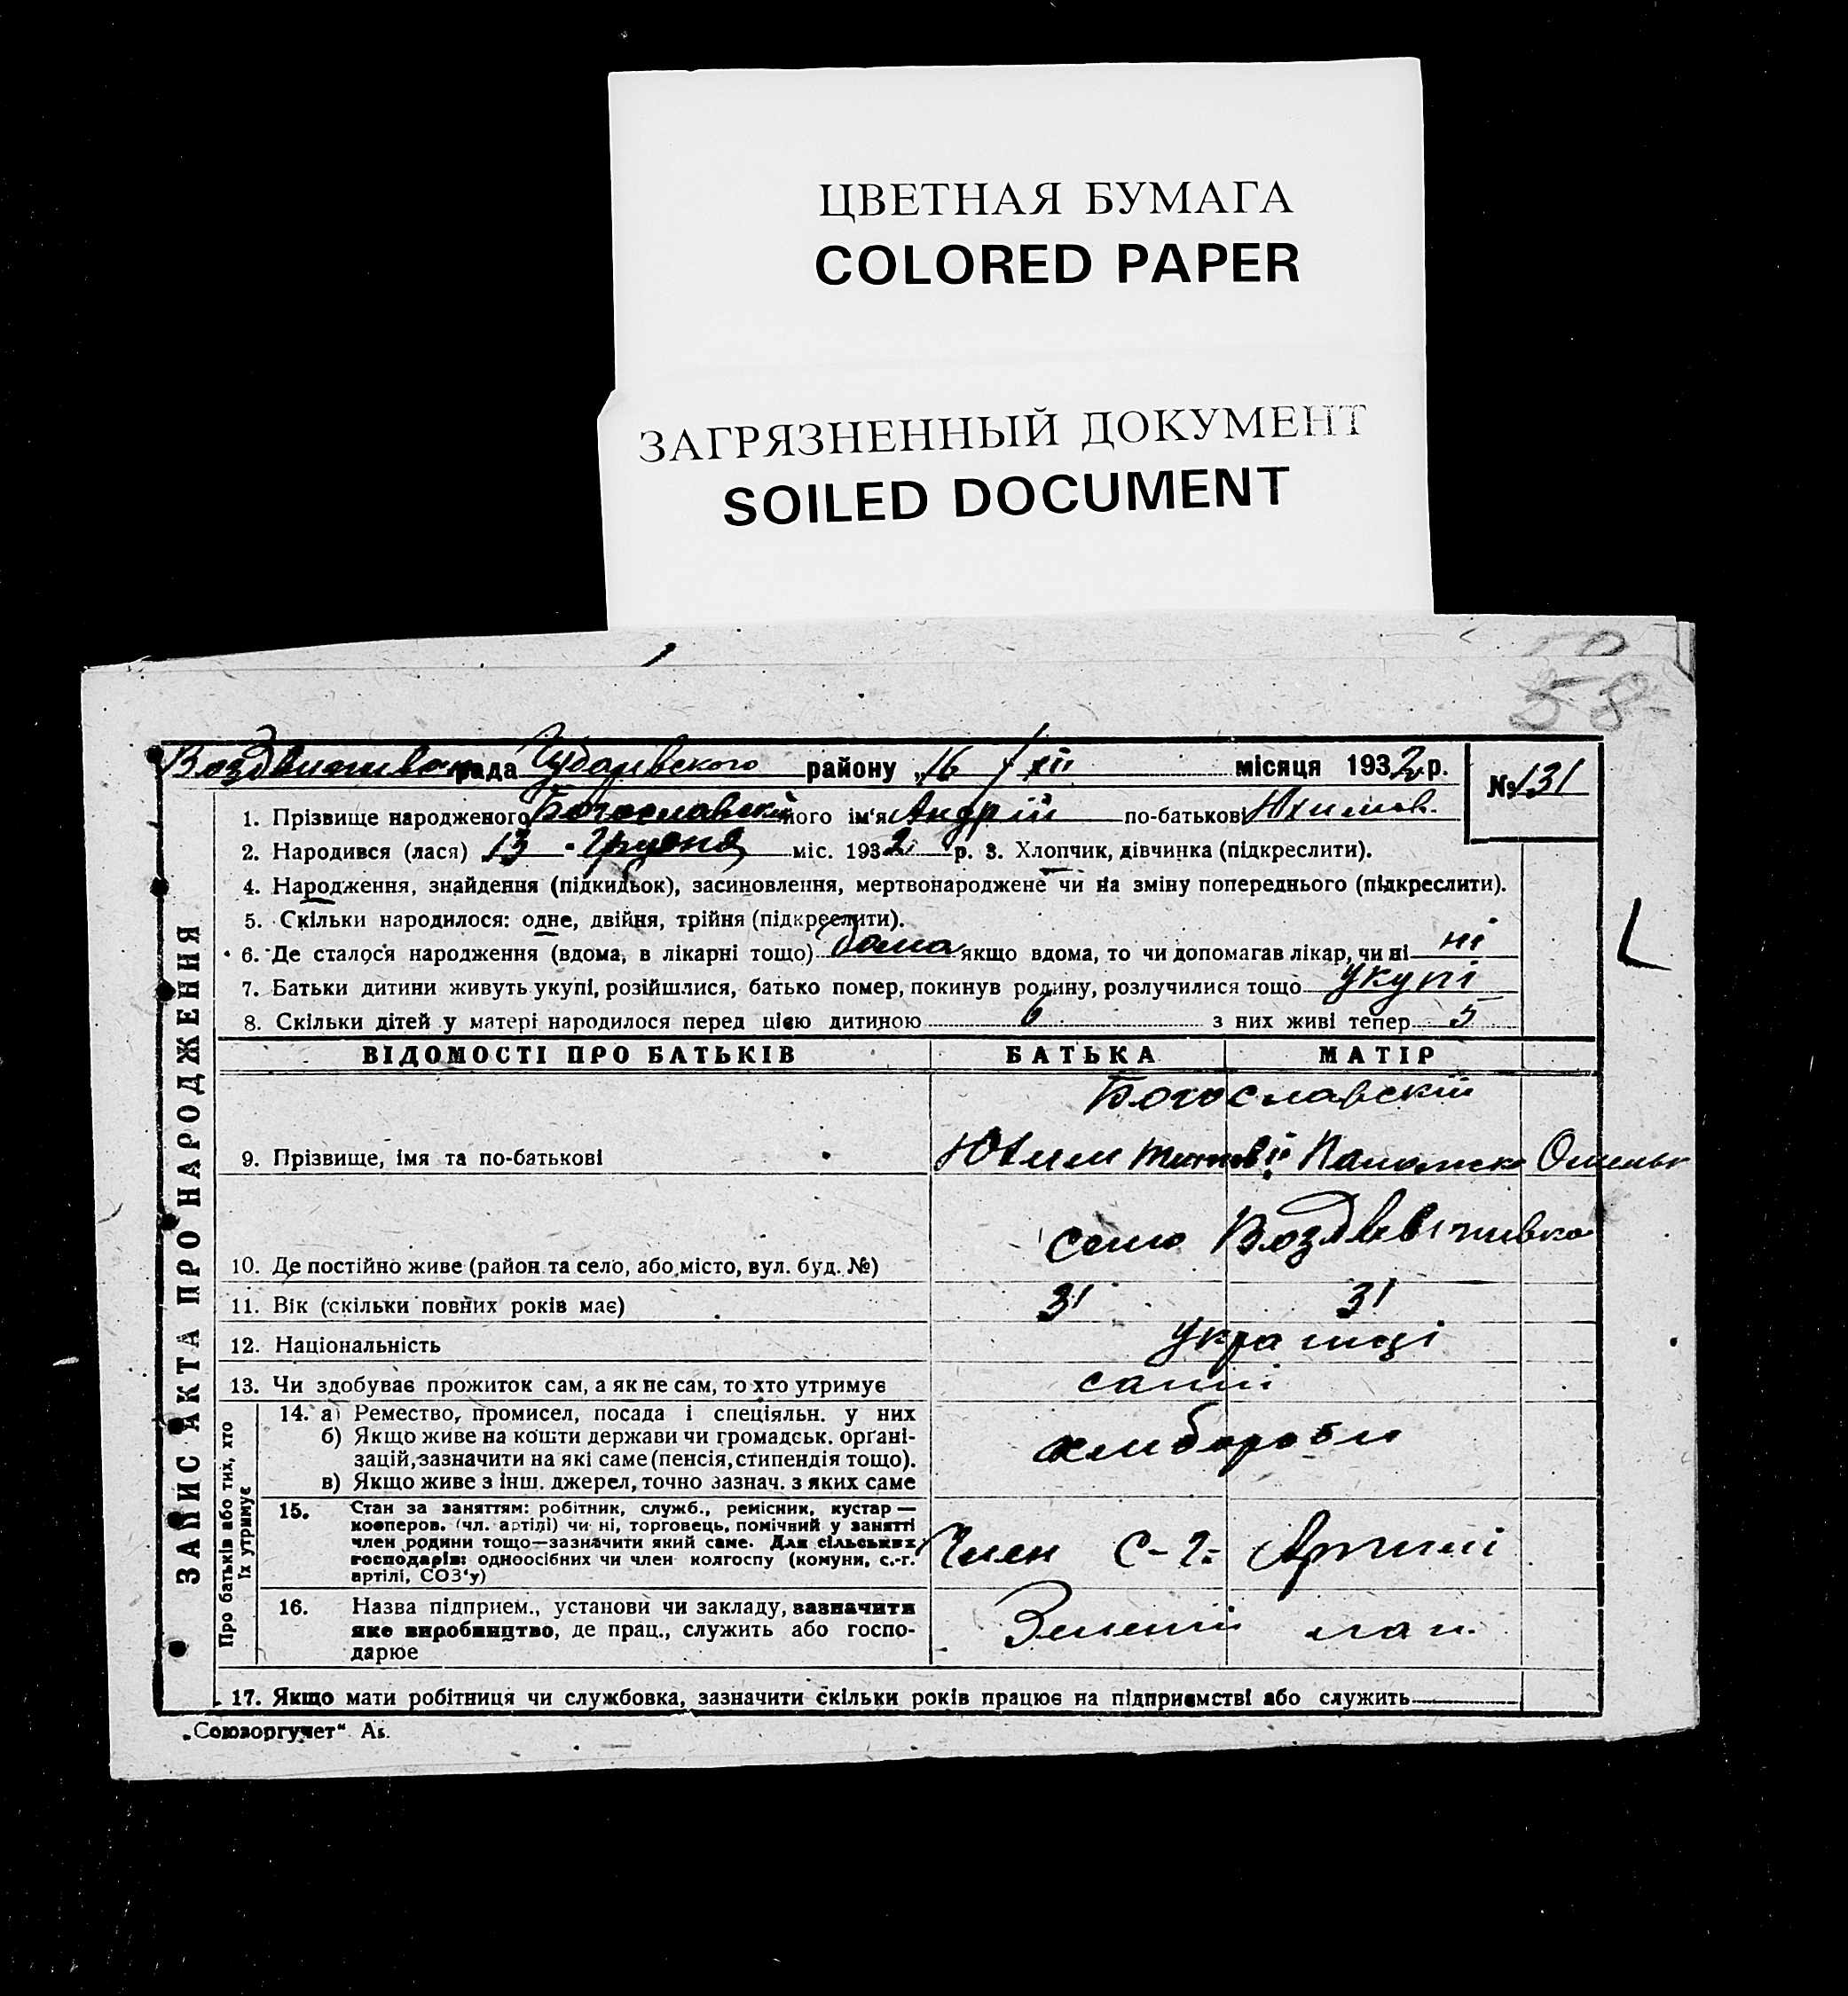 ЦВЕТНАЯ БУМАГА
COLORED PAPER
ЗАГРЯЗНЕННЫЙ ДОКУМЕНТ
SOILED DOCUMENT
58
рада району „16 / XII місяця 1932 р. № 131
1. Прізвище народженого Богославский його ім'я Андрій по-батькові Юхимов.
2. Народився (лася) 13 Грудня міс. 1932 р. 3. Хлопчик, дівчинка (підкреслити).
4. Народження, знайдення (підкидьок), засиновлення, мертвонароджене чи на зміну попереднього (підкреслити).
5. Скільки народилося: одне, двійня, трійня (підкреслити).
6. Де сталося народження (вдома, в лікарні тощо) дома якщо вдома, то чи допомагав лікар, чи ні ні
7. Батьки дитини живуть укупі, розійшлися, батько помер, покинув родину, розлучилися тощо укупі
8. Скільки дітей у матері народилося перед цією дитиною 6 з них живі тепер 5
ЗАПИС АКТА ПРО НАРОДЖЕННЯ
ВІДОМОСТІ ПРО БАТЬКІВ БАТЬКА МАТІР
Богославскій
9. Прізвище, імя та по-батькові
село Воздвиживка
10. Де постійно живе (район та село, або місто, вул. буд. №)
11. Вік (скільки повних років має) 31 31
12. Національність Українці
13. Чи здобуває прожиток сам, а як не сам, то хто утримує самі
Про батьків або тих, хто їх утримує
14. а) Ремество, промисел, посада і спеціяльн. у них
б) Якщо живе на кошти держави чи громадськ. органі-
зацій, зазначити на які саме (пенсія, стипендія тощо).
в) Якщо живе з інш. джерел, точно зазнач. з яких саме
хлибороби
15. Стан за заняттям: робітник, служб., ремісник, кустар —
кооперов. (чл. артілі) чи ні, торговець, помічний у занятті
член родини тощо—зазначити який саме. Для сільських
господарів: одноосібних чи член колгоспу (комуни, с.-г.
артілі, СОЗ'у)
Член С-г- Артилі
16. Назва підприєм., установи чи закладу, зазначити
яке виробництво, де прац., служить або госпо-
дарює
17. Якщо мати робітниця чи службовка, зазначити скільки років працює на підприємстві або служить
„Союзоргучет"